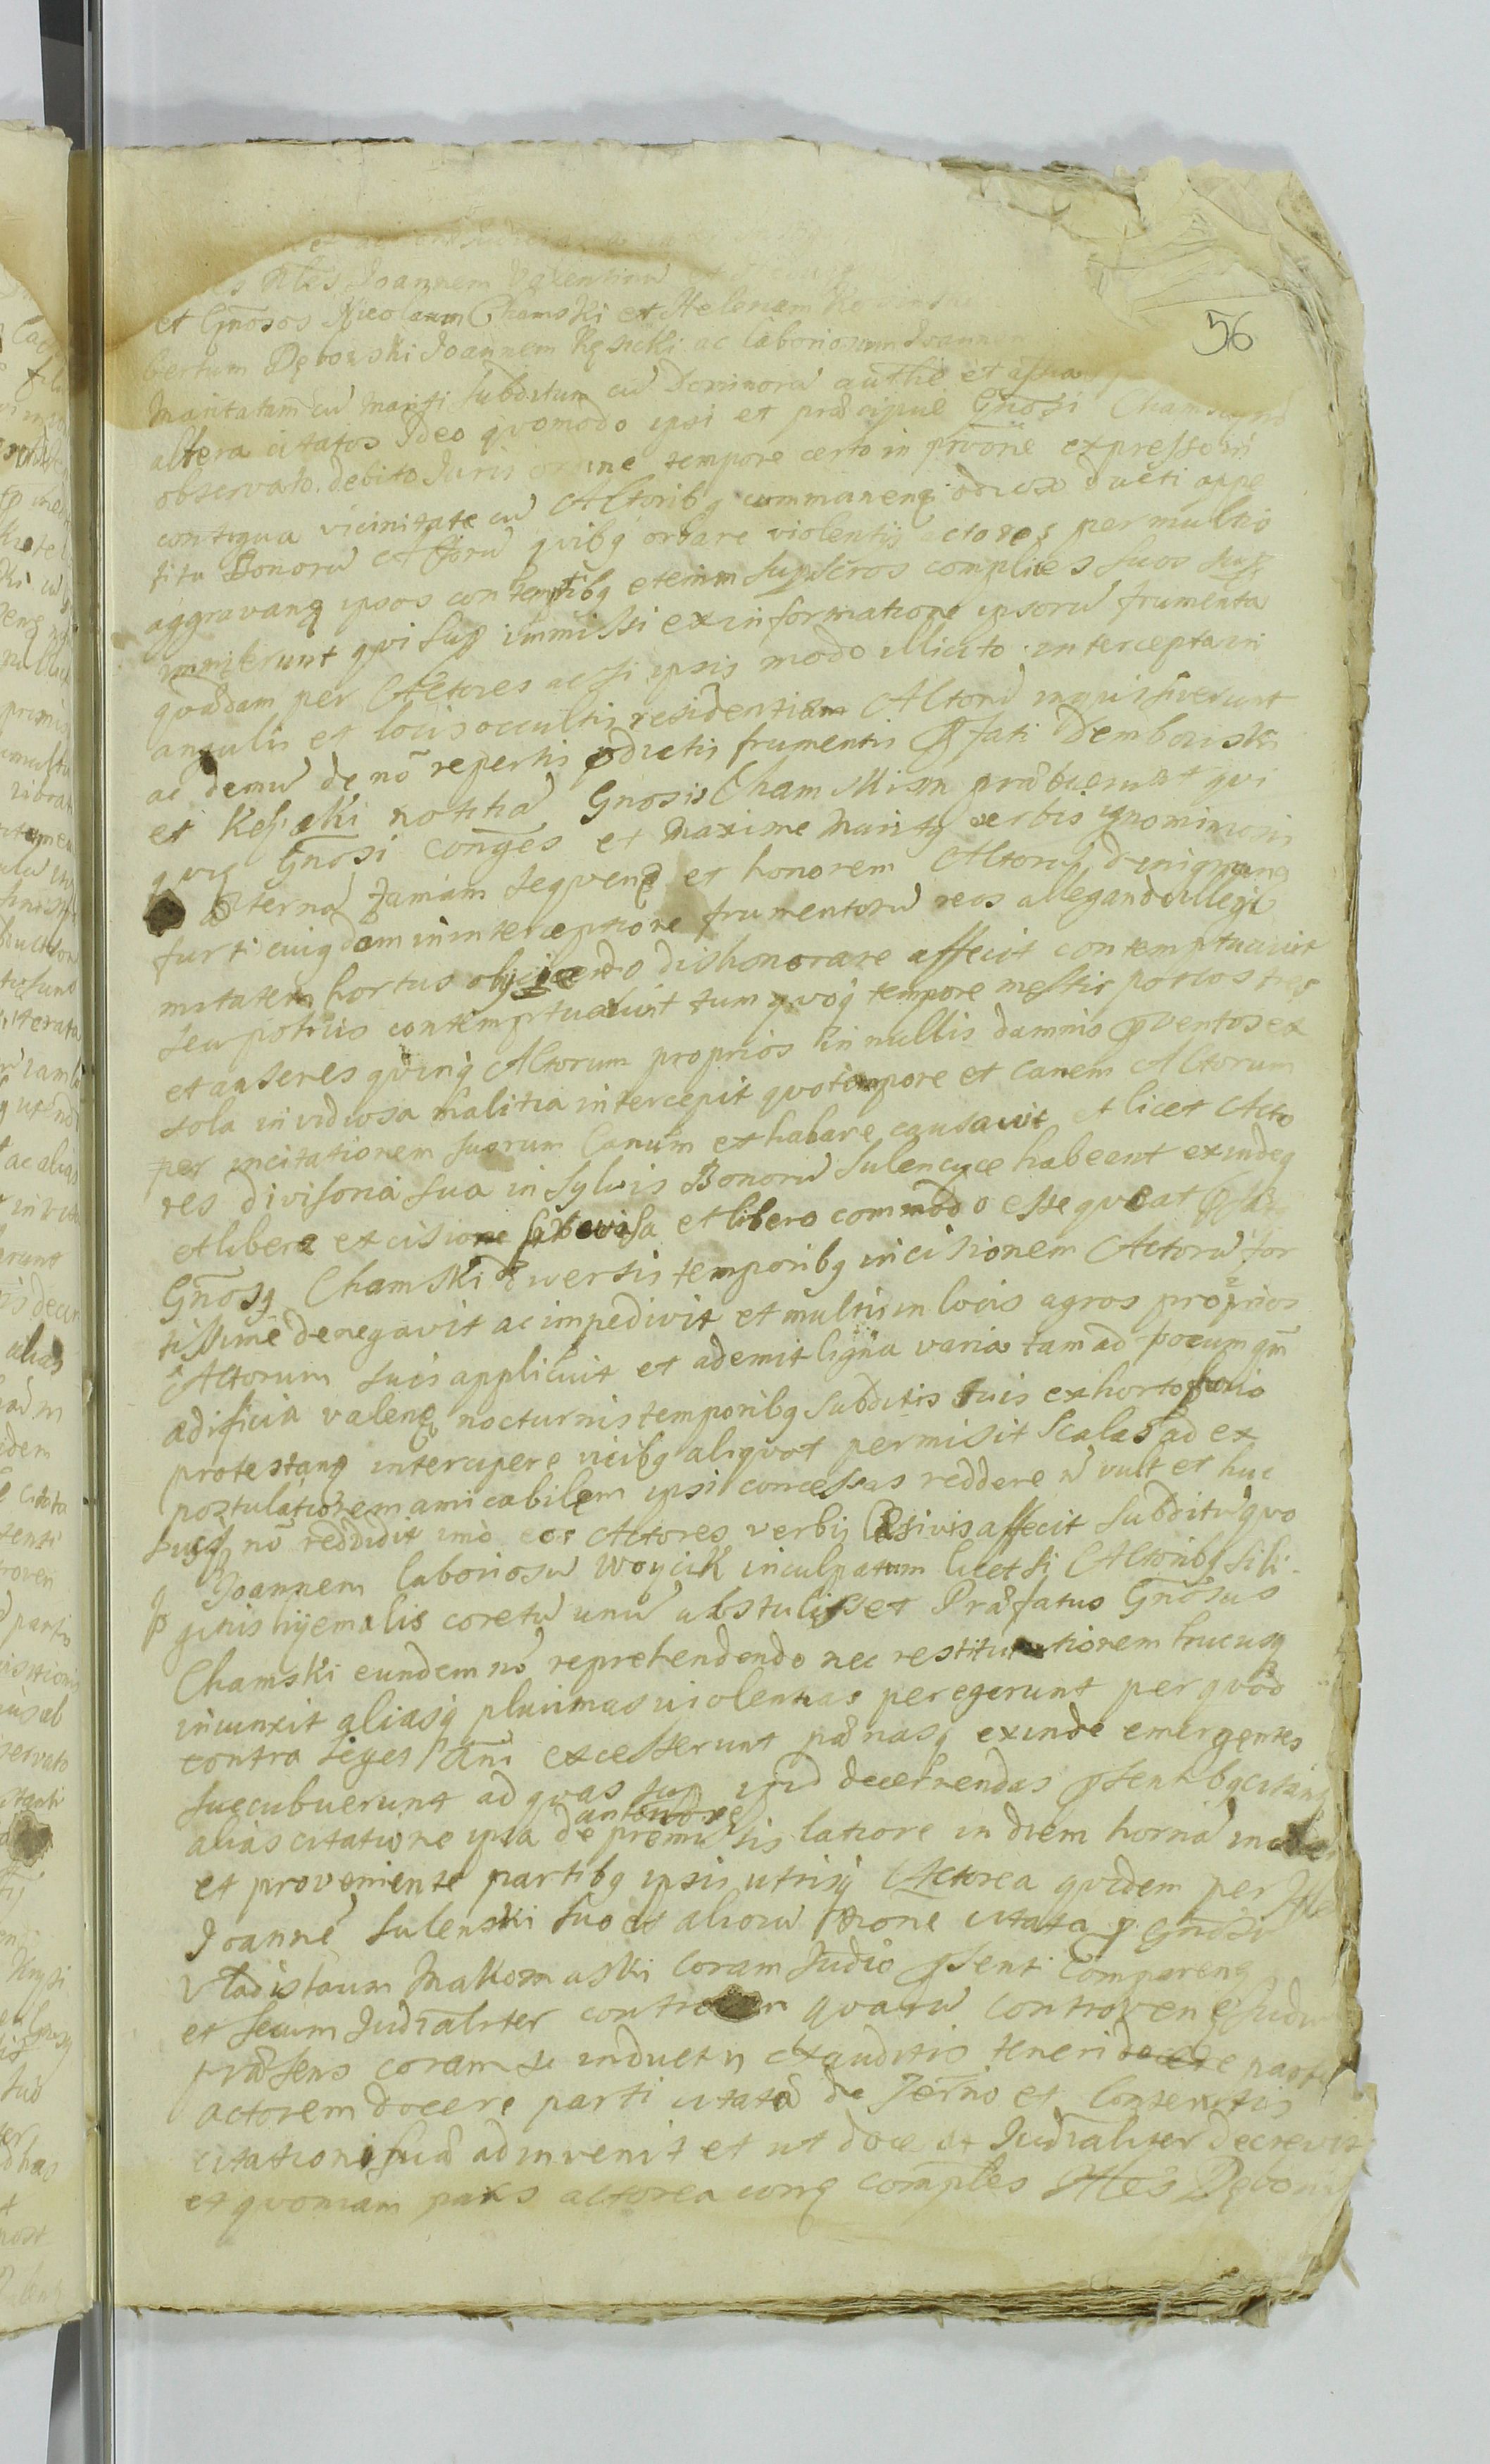 56
Nlis Joannem Valentinu
et Gnosos Nicolaum Chamski et Helenam
bertum Dębowski Joannem Kęsicki ac laboriosum Joannem
Maritatam cu mariti subditum cu Dominoru authe et assia
altera citatos Ideo quomodo ipsi et præcipue Gnosi Chamscy
observato debito Juris ordine tempore certo in prone expresso in
contigua vicinitate cu Actoribq commanenq odiox ducti appe
titu Bonoru Actoru quibq orbare violentijs actores per multio
aggravanq ipsos contemptibq etenim supscros complices suos sup
immiserunt qui sup immissi ex informatione ipsoru frumenta
quædam per Actores ac si ipsis modo illicito intercepta in
angulis et locis occultis residentiam Actoru inquisiverunt
ac demu de no repertis pdictis frumentis Pfati Dembowski
et Kęsicki notitia Gnosis Chamskim præbuerunt qui
quiq Gnosi conges et maxime Maritq verbis ignominiosis
æterna famam sequenq et honorem Actoru denigranq
furti cuiqdam in interceptione frumentoru reos allegando illegi
mitatem hortus objiciendo dishonorare affecit contemptuavit
seu potius contemptuavit tum quoq tempore messis porcos tres
et anseres quinq Actorum proprios in nullis damnis pventos ex
sola invidiosa malitia intercepit quo tempore et Canem Actorum
per incitationem suorum Canum exhalare causavit et licet Acto
res divisoria sua in sylvis Bonoru Sulencyce habeant exindeq
et libera excisione et libero commodo esse queat Pfatq
Gnosq Chamski diversis temporibq incisionem Actoru for
tissime denegavit ac impedivit et multis in locis agros proprios
Actorum suis applicuit et ademit ligna varia tam ad focum qm
ædificia valenq nocturnis temporibq subditis suis ex horto
protestanq intercipere vicibq aliquot permisit Scalas ad ex
postulationem amicabilem ipsi concessas reddere n vult et huc
usq no reddidit imo eos Actores verbis læsivis affecit subditu quo
Joannem laboriosu Woycik inculpatum licet si Actoribq sili
ginis hyemalis coretu unu abstulisset Præfatus Gnosus
Chamski eundem no reprehendendo nec restitutionem hucusq
iniunxit aliasq plurimas violentias peregerunt per quod
contra leges Ani excesserunt pænasq exinde emergentes
succubuerunt ad quas sup ipsid decernendas psentibq citanq
alias citatione ipsa de premissis latiore in diem horna
et proveniente partibq ipsis utrisq Actorea quidem per Nlem
Joanne Sulenski suo et alioru none citata p Gnosu
Vladislaum Makomaski coram Judio psenti Comparenq
et secum Judialiter quaru controvenq Judiu
præsens coram se inductis exauditis teneri docere parte
actorem docere parti citatæ de Termo et Contentis
citationi suæ adinvenit et ut doceat Judialiter decrevit
et quoniam pars actorea conq complés Nles Dębow